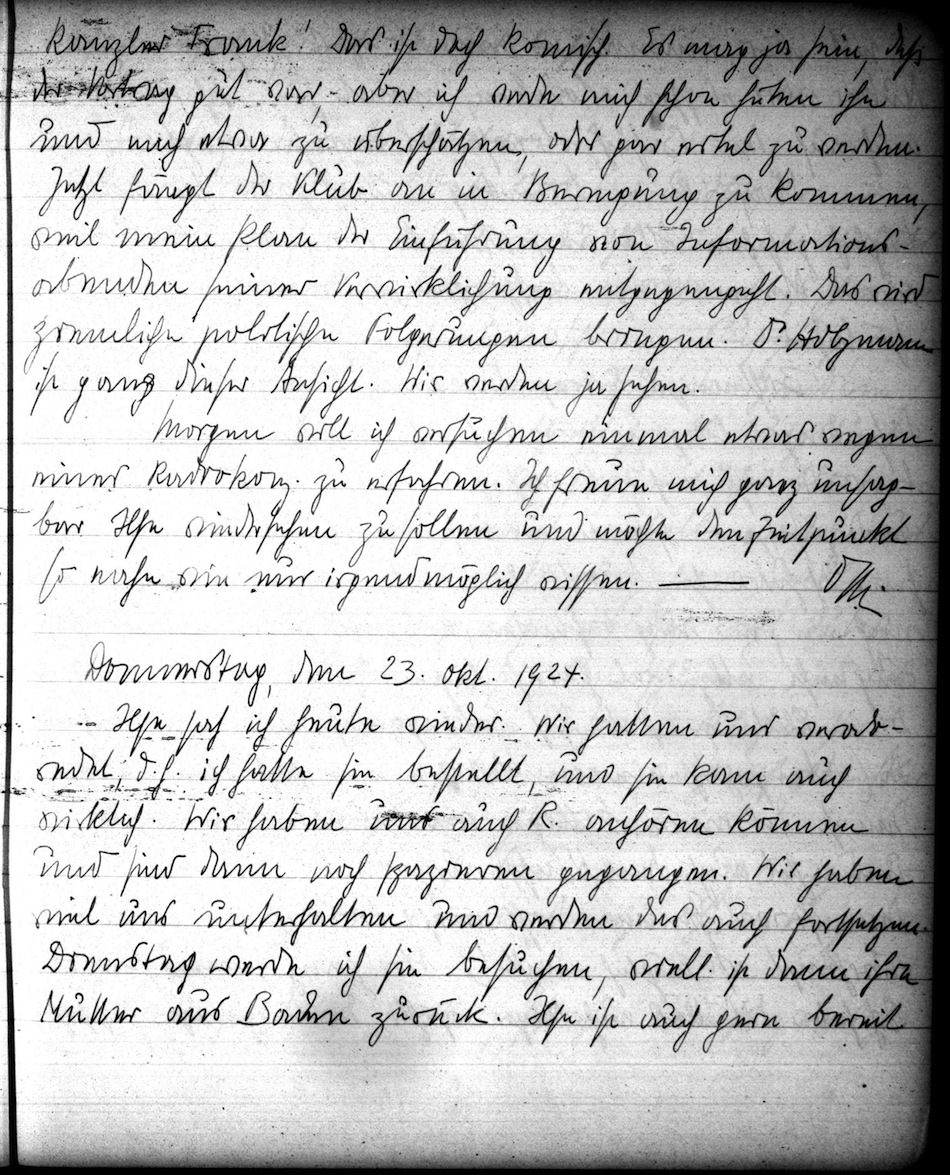 Kanzler Frank! Das ist doch komisch. Es mag ja sein, daß
der Vortrag gut war, - aber ich werde mich schon hüten ihn
und mich etwa zu überschätzen, oder gar eitel zu werden.
Jetzt fängt der Klub an in Bewegung zu kommen,
weil mein Plan der Einführung von Informations-
abenden seiner Verwirklichung entgegengeht. Das wird
ziemliche politische Folgerungen bringen. Dr. Holzmann
ist ganz dieser Ansicht. Wir werden ja sehen.
Morgen will ich versuchen einmal etwas wegen
eines Radiokonz. zu erfahren. Ich freue mich ganz unsag-
bar Ilse wiedersehen zu sollen und möchte den Zeitpunkt
so nahe wie nur irgendmöglich wissen. ——
Donnerstag, den 23. Okt. 1924.
Ilse sah ich heute wieder. Wir hatten uns verab-
redet, d.h. ich hatte sie bestellt, und sie kam auch
wirklich. Wir haben auch R. anhören können
und sind dann noch spazieren gegangen. Wir haben
viel uns unterhalten und werden das auch fortsetzen.
Dienstag werde ich sie besuchen, viell. ist dann ihre
Mutter aus Baden zurück. Ilse ist auch gern bereit